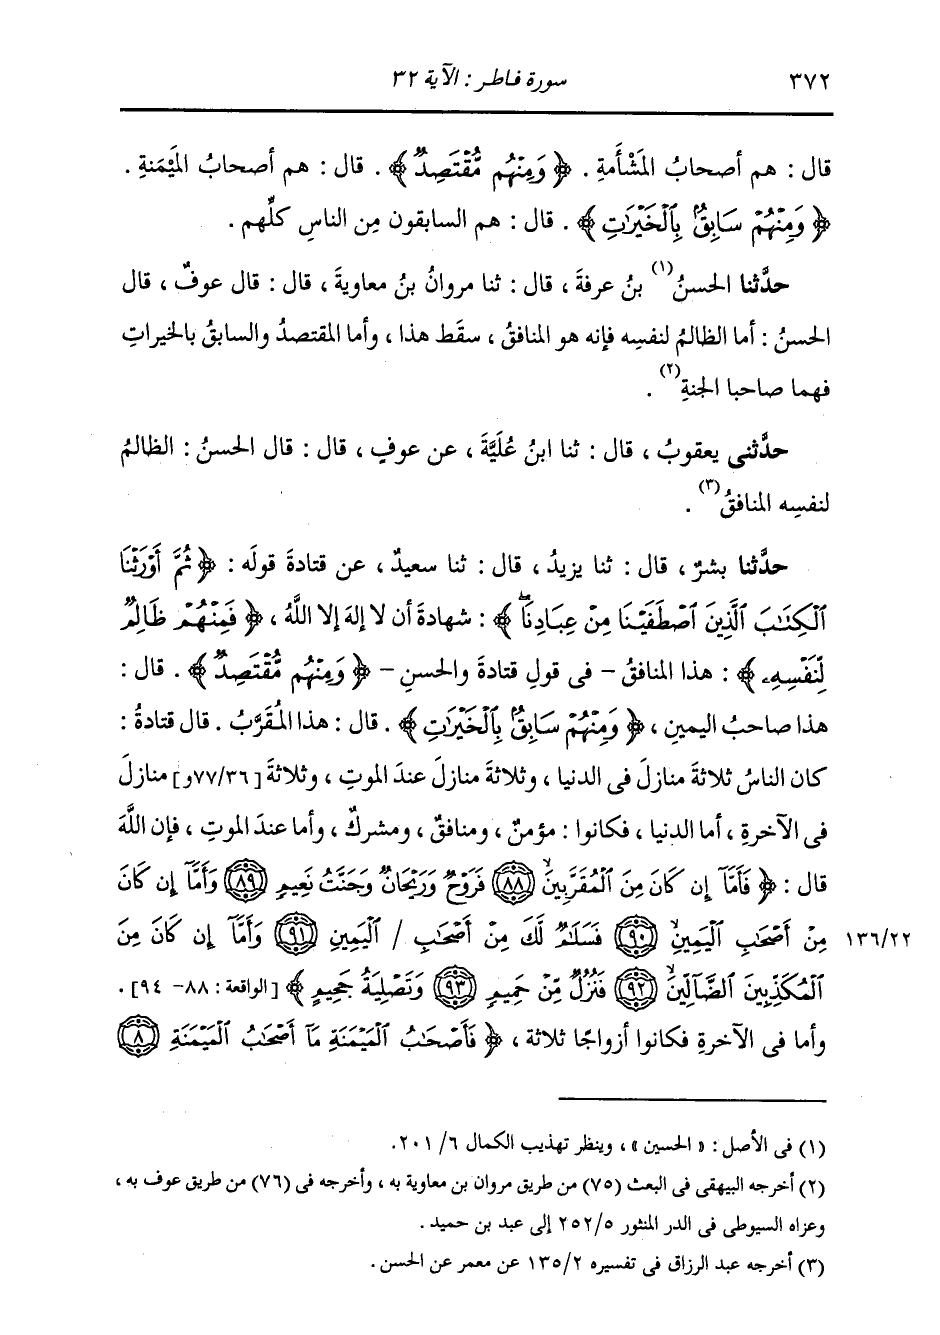 ٣٧٢ سورة فاطر : الآية ٣٢
قال : هم أصحابُ المَشْأَمةِ . ﴿ وَمِنْهُم مُّقْتَصِدٌ ﴾ . قال : هم أصحابُ المَيْمَنةِ .
﴿ وَمِنْهُمْ سَابِقٌ بِالْخَيْرَاتِ ﴾ . قال : هم السابقون مِن الناسِ كلِّهم .
حدَّثنا الحسنُ(١) بنُ عرفةَ ، قال : ثنا مروانُ بنُ معاويةَ ، قال : قال عوفٌ ، قال
الحسنُ : أما الظالمُ لنفسِه فإنه هو المنافقُ ، سقَط هذا ، وأما المقتصدُ والسابقُ بالخيراتِ
فهما صاحبا الجنةِ(٢) .
حدَّثنى يعقوبُ ، قال : ثنا ابنُ عُلَيَّةَ ، عن عوفٍ ، قال : قال الحسنُ : الظالمُ
لنفسِه المنافقُ(٣) .
حدَّثنا بشرٌ ، قال : ثنا يزيدُ ، قال : ثنا سعيدٌ ، عن قتادةَ قولَه : ﴿ ثُمَّ أَوْرَثْنَا
الْكِتَابَ الَّذِينَ اصْطَفَيْنَا مِنْ عِبَادِنَا ۖ ﴾ : شهادةَ أن لا إلهَ إلا اللَّهُ ، ﴿ فَمِنْهُمْ ظَالِمٌ
لِّنَفْسِهِ ﴾ : هذا المنافقُ – فى قولِ قتادةَ والحسنِ – ﴿ وَمِنْهُم مُّقْتَصِدٌ ﴾ . قال :
هذا صاحبُ اليمينِ ، ﴿ وَمِنْهُمْ سَابِقٌ بِالْخَيْرَاتِ ﴾ . قال : هذا المُقَرَّبُ . قال قتادةُ :
كان الناسُ ثلاثةَ منازلَ فى الدنيا ، وثلاثةَ منازلَ عندَ الموتِ ، وثلاثةَ [٧٧/٣٦و] منازلَ
فى الآخرةِ ، أما الدنيا ، فكانوا : مؤمنٌ ، ومنافقٌ ، ومشركٌ ، وأما عندَ الموتِ ، فإن اللَّهَ
قال : ﴿ فَأَمَّا إِن كَانَ مِنَ الْمُقَرَّبِينَ ۙ ٨٨ فَرَوْحٌ وَرَيْحَانٌ وَجَنَّتُ نَعِيمٍ ٨٩ وَأَمَّا إِن كَانَ
مِنْ أَصْحَابِ الْيَمِينِ ۙ ٩٠ فَسَلَامٌ لَّكَ مِنْ أَصْحَابِ / الْيَمِينِ ٩١ وَأَمَّا إِن كَانَ مِنَ ١٣٦/٢٢
الْمُكَذِّبِينَ الضَّالِّينَ ۙ ٩٢ فَنُزُلٌ مِّنْ حَمِيمٍ ٩٣ وَتَصْلِيَةُ جَحِيمٍ ﴾ [الواقعة : ٨٨– ٩٤] .
وأما فى الآخرةِ فكانوا أزواجًا ثلاثة ، ﴿ فَأَصْحَابُ الْمَيْمَنَةِ مَا أَصْحَابُ الْمَيْمَنَةِ ٨
(١) فى الأصل : « الحسين » ، وينظر تهذيب الكمال ٢٠١/٦.
(٢) أخرجه البيهقى فى البعث (٧٥) من طريق مروان بن معاوية به ، وأخرجه فى (٧٦) من طريق عوف به ،
وعزاه السيوطى فى الدر المنثور ٢٥٢/٥ إلى عبد بن حميد .
(٣) أخرجه عبد الرزاق فى تفسيره ١٣٥/٢ عن معمر عن الحسن .